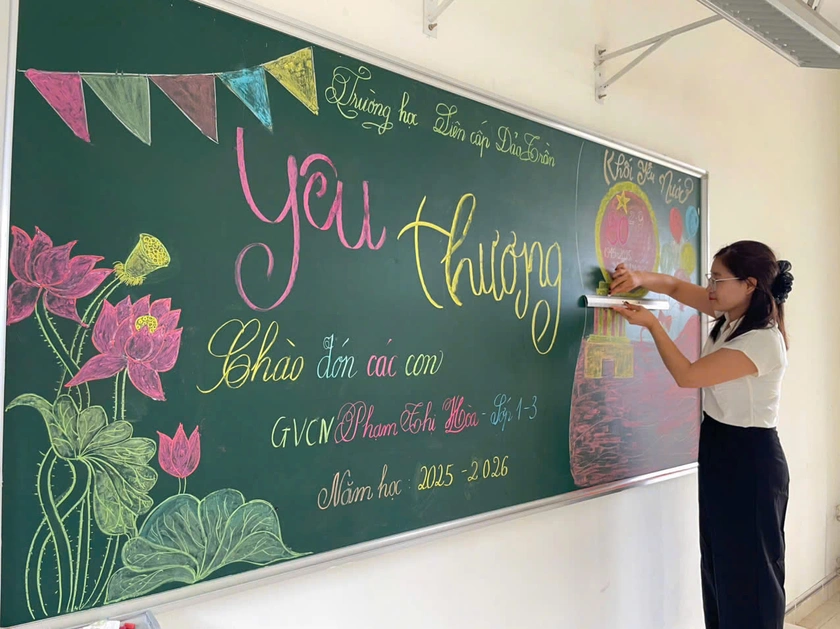 Trường học Liên cấp Dảo Trần
Yêu thương
Chào đón các con
GVCN Phạm Thị Hòa - Lớp 1-3
Năm học: 2025-2026
Khối yêu nước